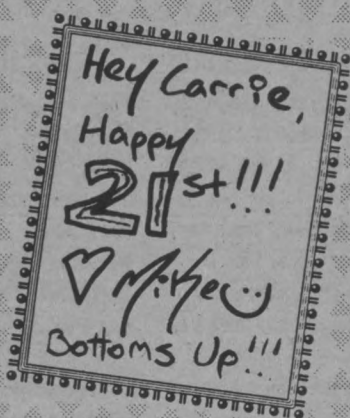 Hey Carrie,
Happy
21st!!!
♡ Mike
Bottoms Up!!!